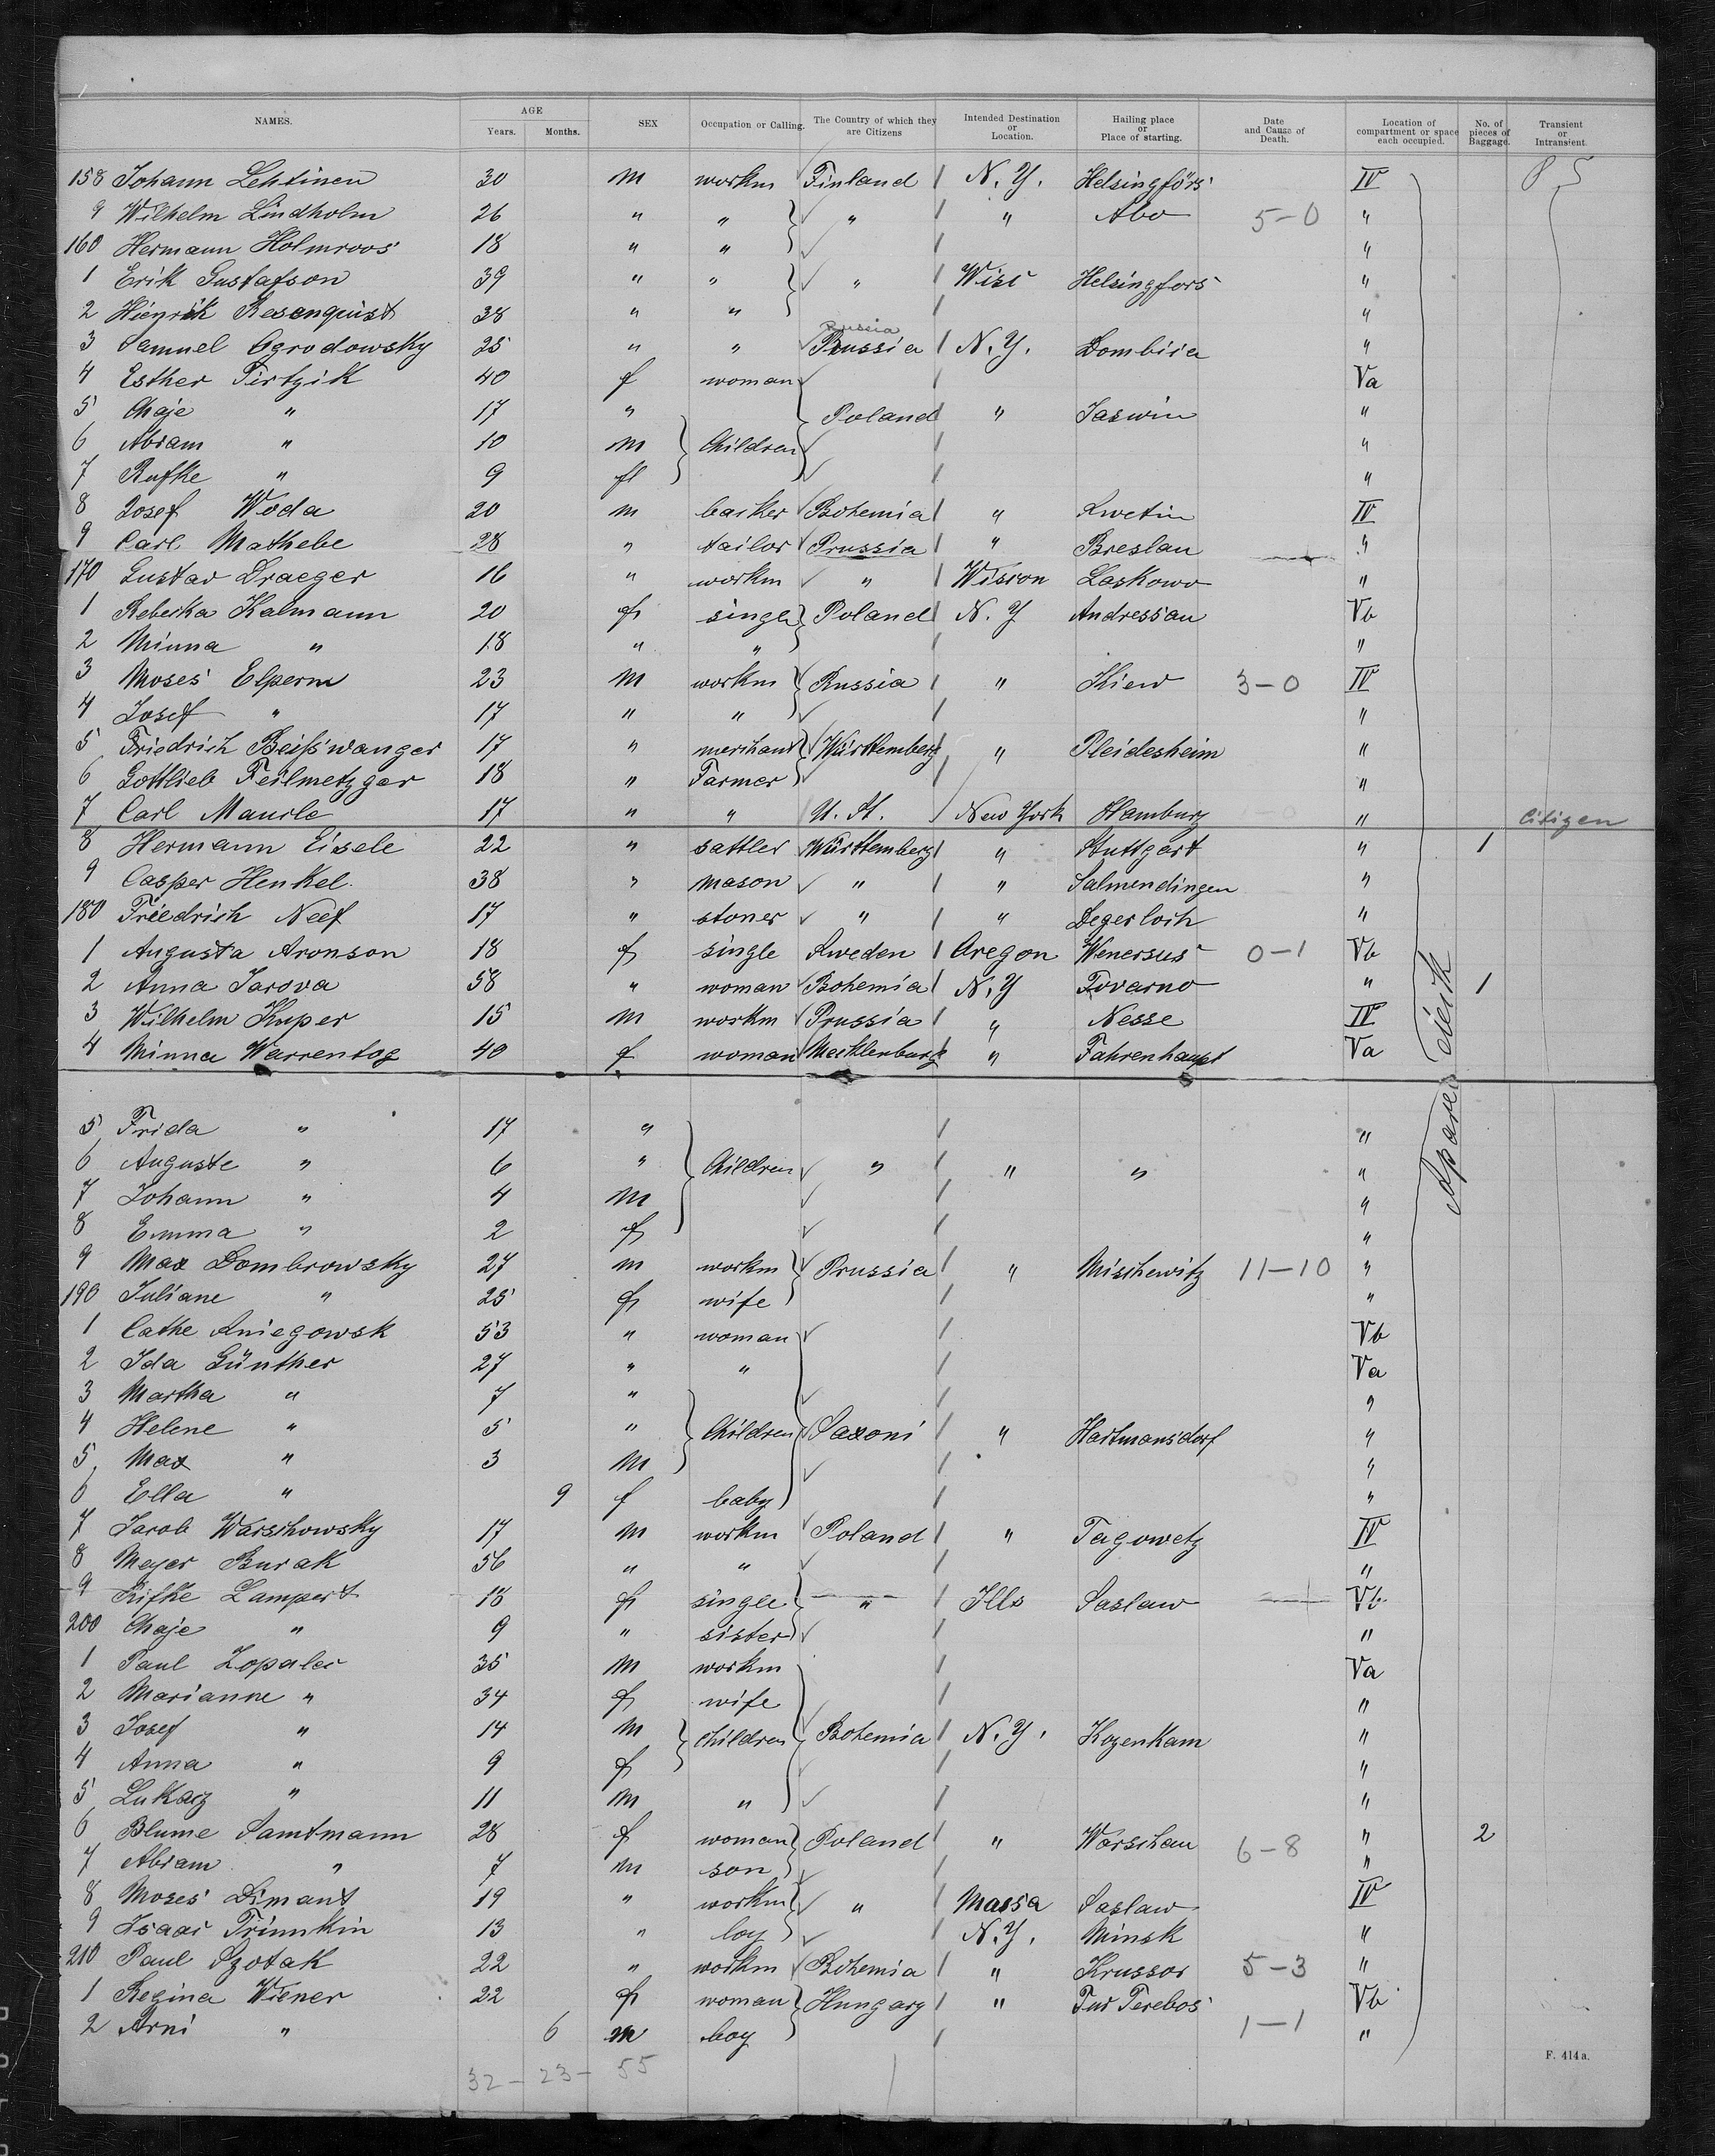 NAMES. AGE Years. Months. SEX Occupation or Calling. The Country of which they are Citizens Intended Destination or Location. Hailing place or Place of starting. Date and Cause of Death. Location of compartment or space each occupied. No. of pieces of Baggage. Transient or Intransient.
158 Johann Lehtinen 30 m workm Finland N.Y. Helsingförs IV
9 Wilhelm Lindholm 26 " " " " Abo 5-0 "
160 Hermann Holmroos 18 " " "
1 Erik Gustafson 39 " " " Wisc Helsingfors "
2 Hienrik Resenquist 38 " " "
3 Samuel Ogrodowsky 25 " " Prussia Russia N.Y. Lombiia "
4 Esther Tirtzik 40 f woman Va
5 Chaje " 17 " Poland " Jaswin "
6 Abram " 10 m Children "
7 Rufke " 9 f "
8 Josef Woda 20 m backer Bohemia " Kwetin IV
9 Carl Mathebe 28 " tailor Prussia " Breslau "
170 Gustav Draeger 16 " workm " Wiscon Laskowo "
1 Rebecka Kalmann 20 f single Poland N.Y Andressau Vb
2 Minna " 18 " " "
3 Moses Elperm 23 m workm Russia " Kiew 3-0 IV
4 Josef " 17 " " "
5 Friedrich Beißwanger 17 " merchant Württemberg " Pleidesheim "
6 Gottlieb Feilmetzger 18 " Farmer "
7 Carl Maurle 17 " " U. St. New York Hamburg " Citizen
8 Hermann Eisele 22 " sattler Württemberg " Stuttgart " 1
9 Casper Henkel 38 " mason " " Salmendingen "
180 Friedrich Neef 17 " stoner " " Degerloch "
1 Augusta Aronson 18 f single Sweden Oregon Wenersus 0-1 Vb
2 Anna Jarova 58 " woman Bohemia N.Y Tovarno " 1
3 Wilhelm Kuper 15 m workm Prussia " Nesse IV
4 Minna Warrentog 40 f woman Mecklenburg " Fahrenhaupt Va
5 Frida " 17 " "
6 Auguste " 6 " Children " " " "
7 Johann " 4 m "
8 Emma " 2 f "
9 Max Dombrowsky 27 m workm Prussia " Mischewitz 11-10 "
190 Juliane " 25 f wife "
1 Cathe Aniegowsk 53 " woman Vb
2 Ida Günther 27 " " Va
3 Martha " 7 " "
4 Helene " 5 " Children Saxoni " Hartmansdorf "
5 Max " 3 m "
6 Ella " 9 f baby "
7 Jacob Warschowsky 17 m workm Poland " Tagowetz IV
8 Meyer Burak 56 " " "
9 Rifke Lampert 18 f single " Ills Saslaw Vb
200 Chaje " 9 " sister "
1 Paul Zopalec 35 m workm Va
2 Marianne " 34 f wife "
3 Josef " 14 m children Bohemia N.Y. Kozenkam "
4 Anna " 9 f "
5 Lukacz " 11 m " "
6 Blume Samtmann 28 f woman Poland " Warschau 6-8 " 2
7 Abram " 7 m son "
8 Moses Dimant 19 " workm " Massa Saslaw IV
9 Isaac Trimnkin 13 " boy N.Y. Minsk "
210 Paul Szotak 22 " workm Bohemia " Krussor 5-3 "
1 Regina Wiener 22 f woman Hungary " Tur Terebos Vb
2 Arni " 6 m boy 1-1 "
32-23-55
F. 414a.